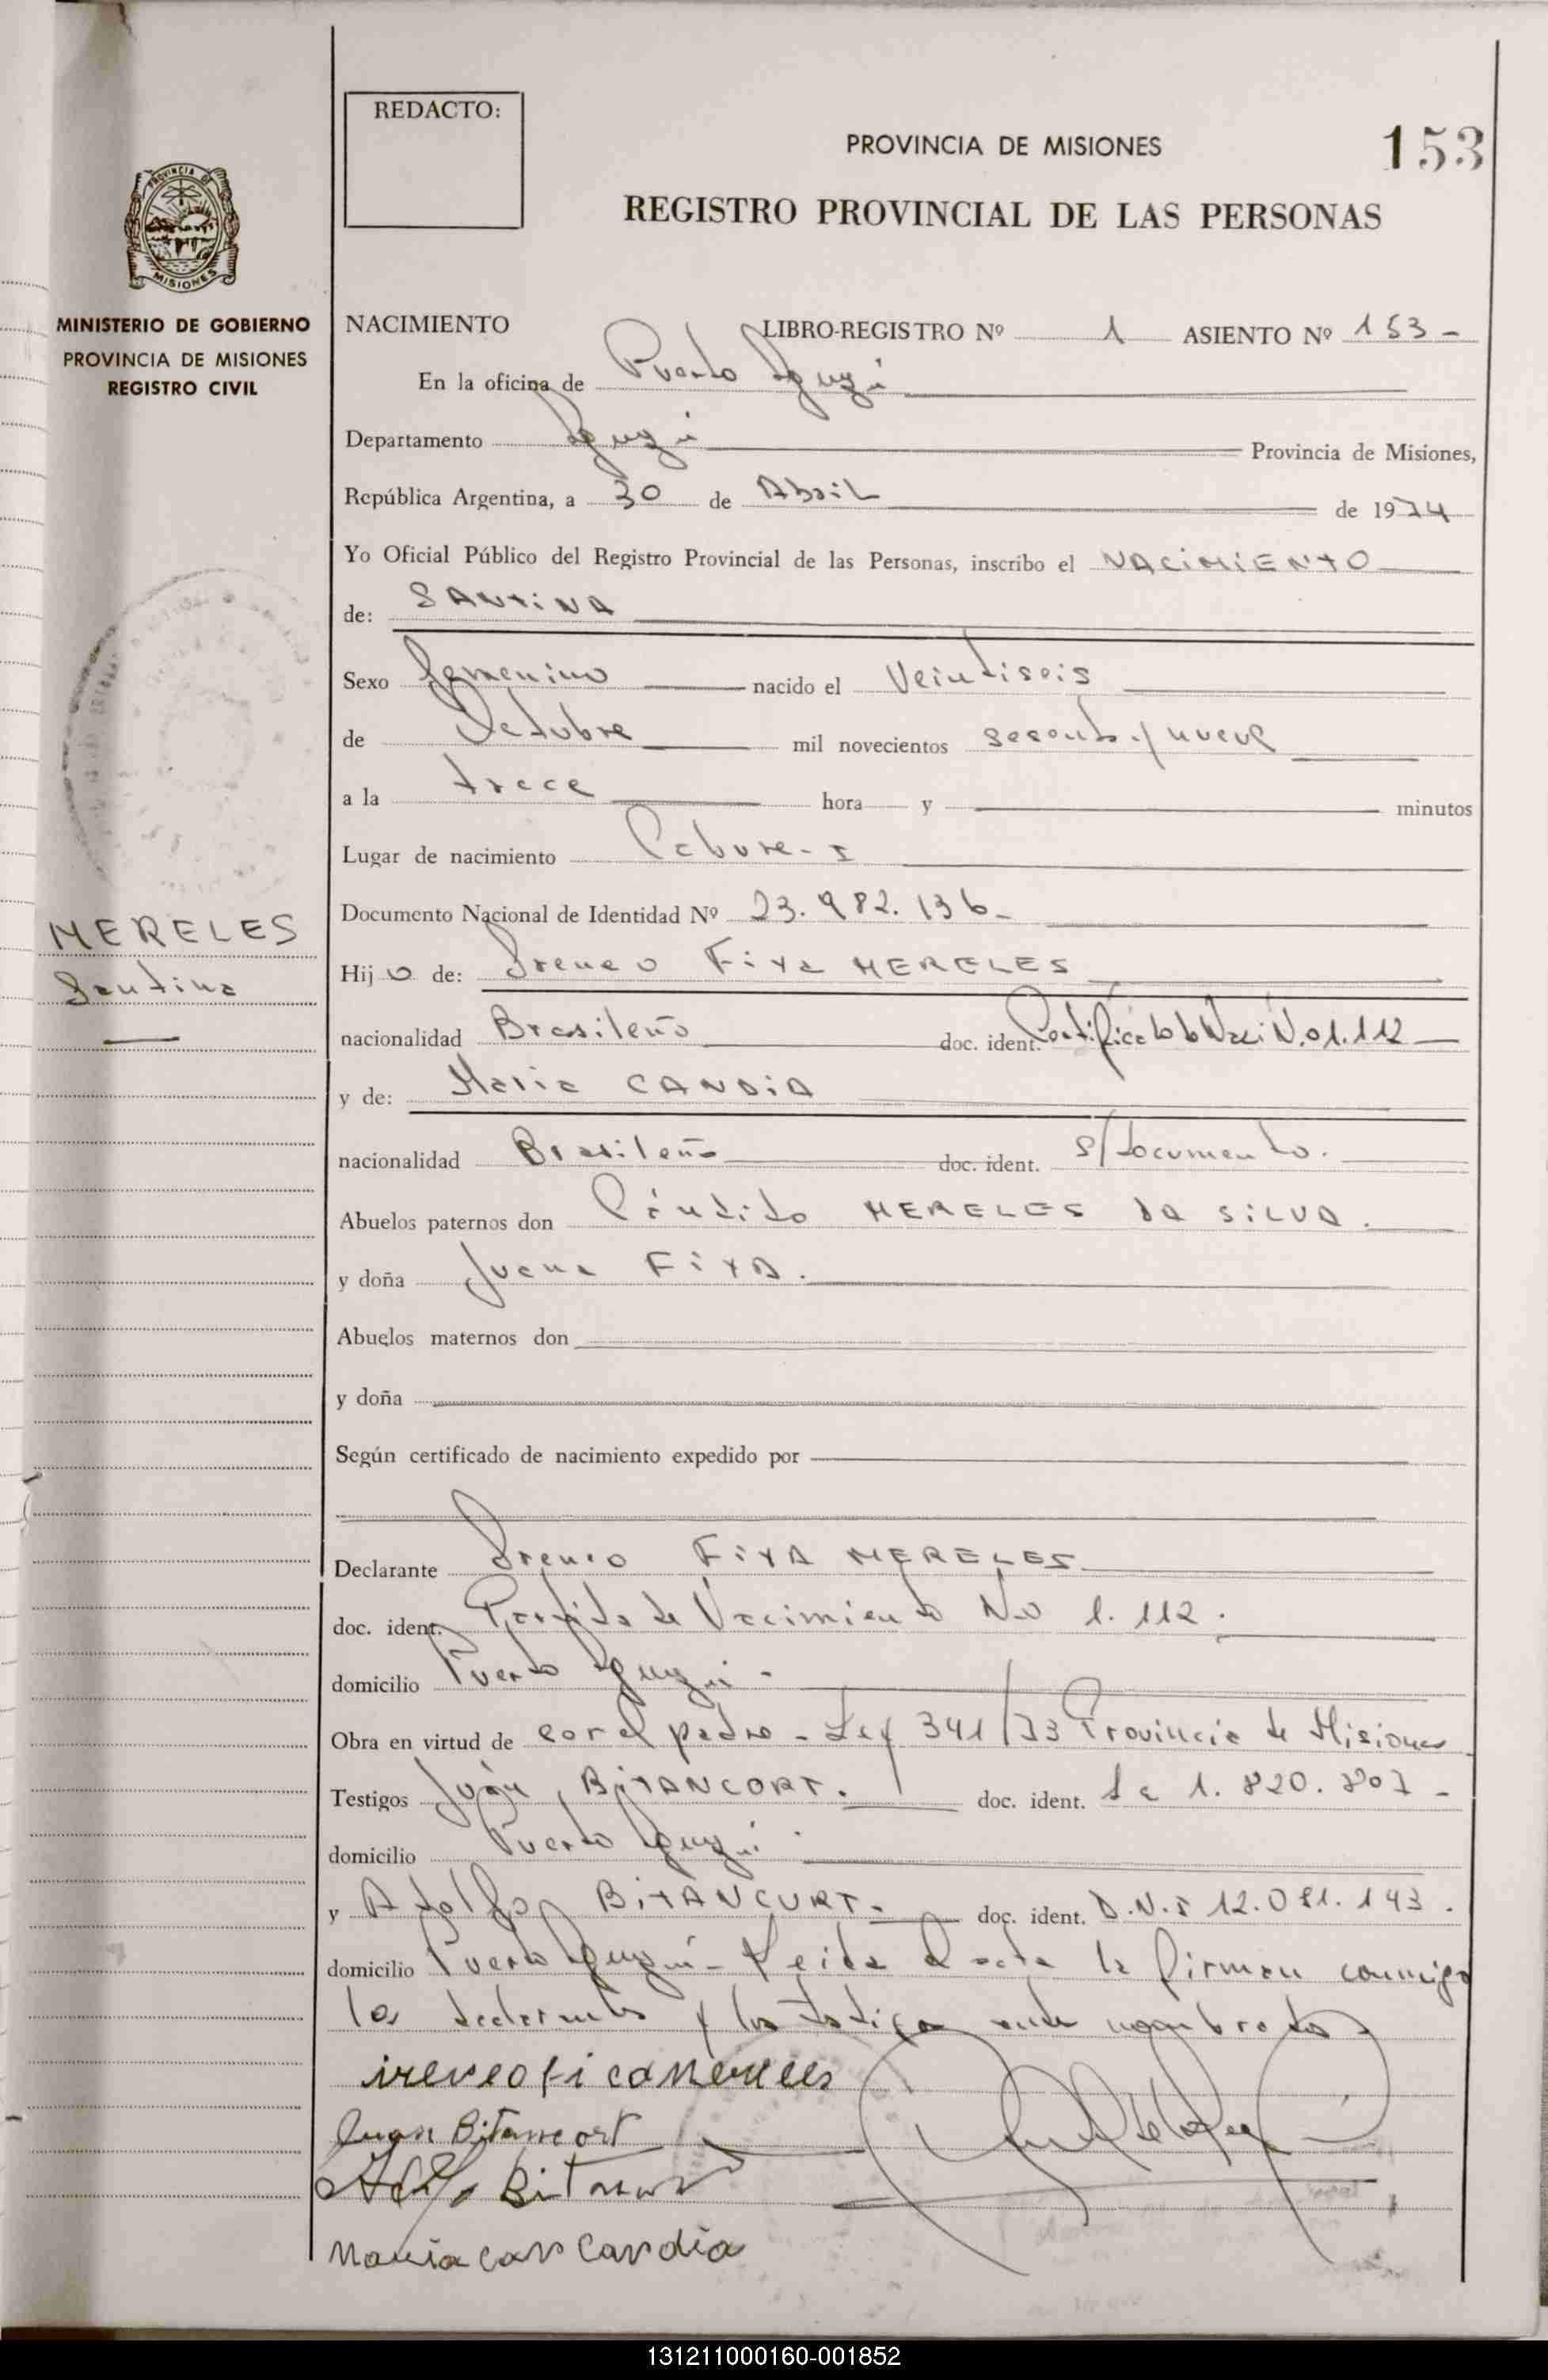 REDACTO:
PROVINCIA DE MISIONES
153
REGISTRO PROVINCIAL DE LAS PERSONAS
PROVINCIA DE
MISIONES
MINISTERIO DE GOBIERNO
PROVINCIA DE MISIONES
REGISTRO CIVIL
NACIMIENTO LIBRO-REGISTRO Nº 1 ASIENTO Nº 153 -
En la oficina de Puerto Iguazú
Departamento Iguazú Provincia de Misiones,
República Argentina, a 30 de Abril de 1974
Yo Oficial Público del Registro Provincial de las Personas, inscribo el NACIMIENTO
de: SANTINA
Sexo Femenino nacido el Veintiseis
de Octubre mil novecientos sesenta y nueve
a la trece hora y minutos
Lugar de nacimiento Cabure-I
Documento Nacional de Identidad Nº 23.982.136-
MERELES
Santina
Hijo de: Ireneo Fixa MERELES
nacionalidad Brasileño doc. ident. Certificado de Naci N.o 1.112
y de: Maria CANDIA
nacionalidad Brasileña doc. ident. s/documento.
Abuelos paternos don Cándido MERELES DA SILVA.
y doña Juana FIXA.
Abuelos maternos don
y doña
Según certificado de nacimiento expedido por
Declarante Ireneo FIXA MERELES
doc. ident. de Nacimiento No 1.112.
domicilio Puerto Iguazú.
Obra en virtud de ser el padre - Ley 341/73 Provincia de Misiones
Testigos Juán BITANCORT. doc. ident. 1.820.807-
domicilio Puerto Iguazú.
y Adolfo BITANCURT. doc. ident. D.N.I 12.081.143.
domicilio Puerto Iguazú - Leida el acta la firman conmigo
los declarantes y los testigos ante nombrados
ireneo fi ca mereles
Juan Bitancort
Adolfo
Maria can candia
131211000160-001852